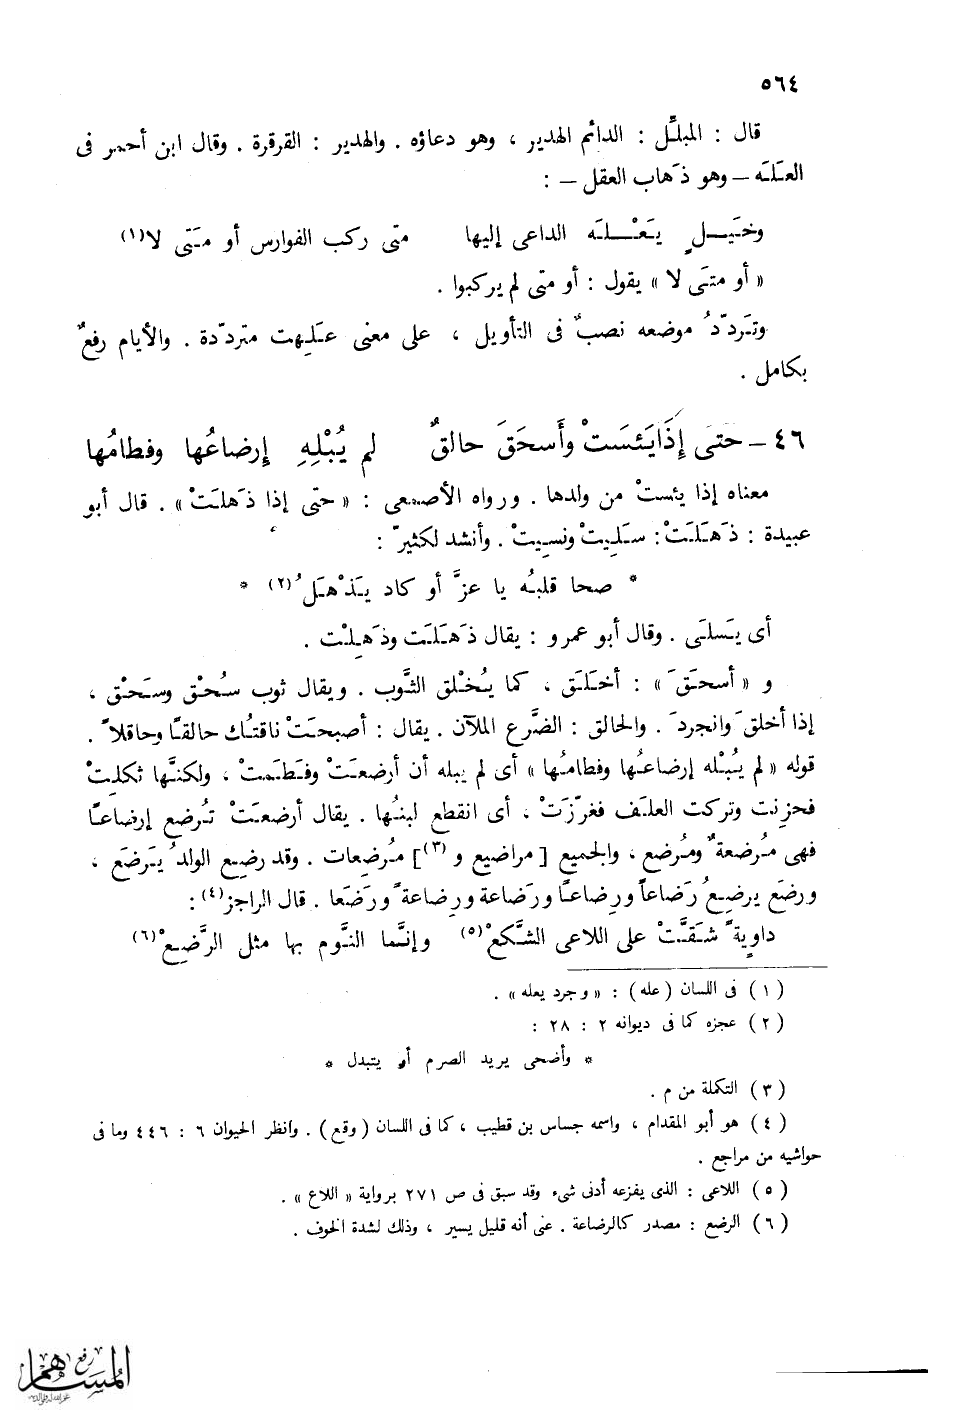 ٥٦٤
قال : المبلِّل : الدائم الهدير ، وهو دعاؤه . والهدير : القرقرة . وقال ابن أحمر فى
العَلَه – وهو ذَهاب العقل – :
وخَيــلٍ يَعْــلَه الداعى إليها متى ركب الفوارس أو متَى لا(١)
« أو متَى لا » يقول : أو متى لم يركبوا .
وتَردّدُ موضعه نصبٌ فى التأويل ، على معنى عَلِهت متردّدة . والأيام رفعٌ
بكامل .
٤٦ – حتى إِذَا يَئسَتْ وأَسحَقَ حالقٌ لم يُبْلِهِ إرضاعُها وفطامُها
معناه إذا يئستْ من ولدها . ورواه الأصمعى : « حتّى إذا ذَهلتْ » . قال أبو
عبيدة : ذَهَلَتْ : سَلِيتْ ونسِيتْ . وأنشد لكثيرّ :
* صحا قلبُه يا عزَّ أو كاد يَذْهَلُ(٢) *
أى يَسلَى . وقال أبو عمرو : يقال ذَهَلَت وذَهِلْت .
و « أسحَقَ » : أخلَق ، كما يُخْلق الثَّوب . ويقال ثوب سُحْق وسَحْق ،
إذا أخلقَ وانجردَ . والحالق : الضَّرع الملآن . يقال : أصبحَتْ ناقتُك حالقًا وحافلاً .
قوله « لم يُبْله إرضاعُها وفطامُها » أى لم يبله أن أرضعَتْ وفَطَمتْ ، ولكنَّها ثكلِتْ
فحزِنت وتركت العلَف فغرّزتْ ، أى انقطع لبنُها . يقال أرضعَتْ تُرضع إرضاعًا
فهى مُرضعةٌ ومُرضع ، والجميع [ مراضيع و(٣) ] مُرضِعات . وقد رضِع الولدُ يَرضَع ،
ورضَع يرضِعُ رَضاعاً ورِضاعًا ورَضاعة ورِضاعةً ورَضَعا . قال الراجز(٤) :
داوِيةً شَقَّتْ على اللاعى الشَّكعْ(٥) وإنَّما النَّوم بها مثل الرَّضِعْ(٦)
( ١ ) فى اللسان ( عله ) : « وجرد يعله » .
( ٢ ) عجزه كما فى ديوانه ٢ : ٢٨ :
* وأضحى يريد الصرم أو يتبدل *
( ٣ ) التكملة من م .
( ٤ ) هو أبو المقدام ، واسمه جساس بن قطيب ، كما فى اللسان ( وقع ) . وانظر الحيوان ٦ : ٤٤٦ وما فى
حواشيه من مراجع .
( ٥ ) اللاعى : الذى يفزعه أدنى شىء وقد سبق فى ص ٢٧١ برواية « اللاع » .
( ٦ ) الرضع : مصدر كالرضاعة . عنى أنه قليل يسير ، وذلك لشدة الخوف .